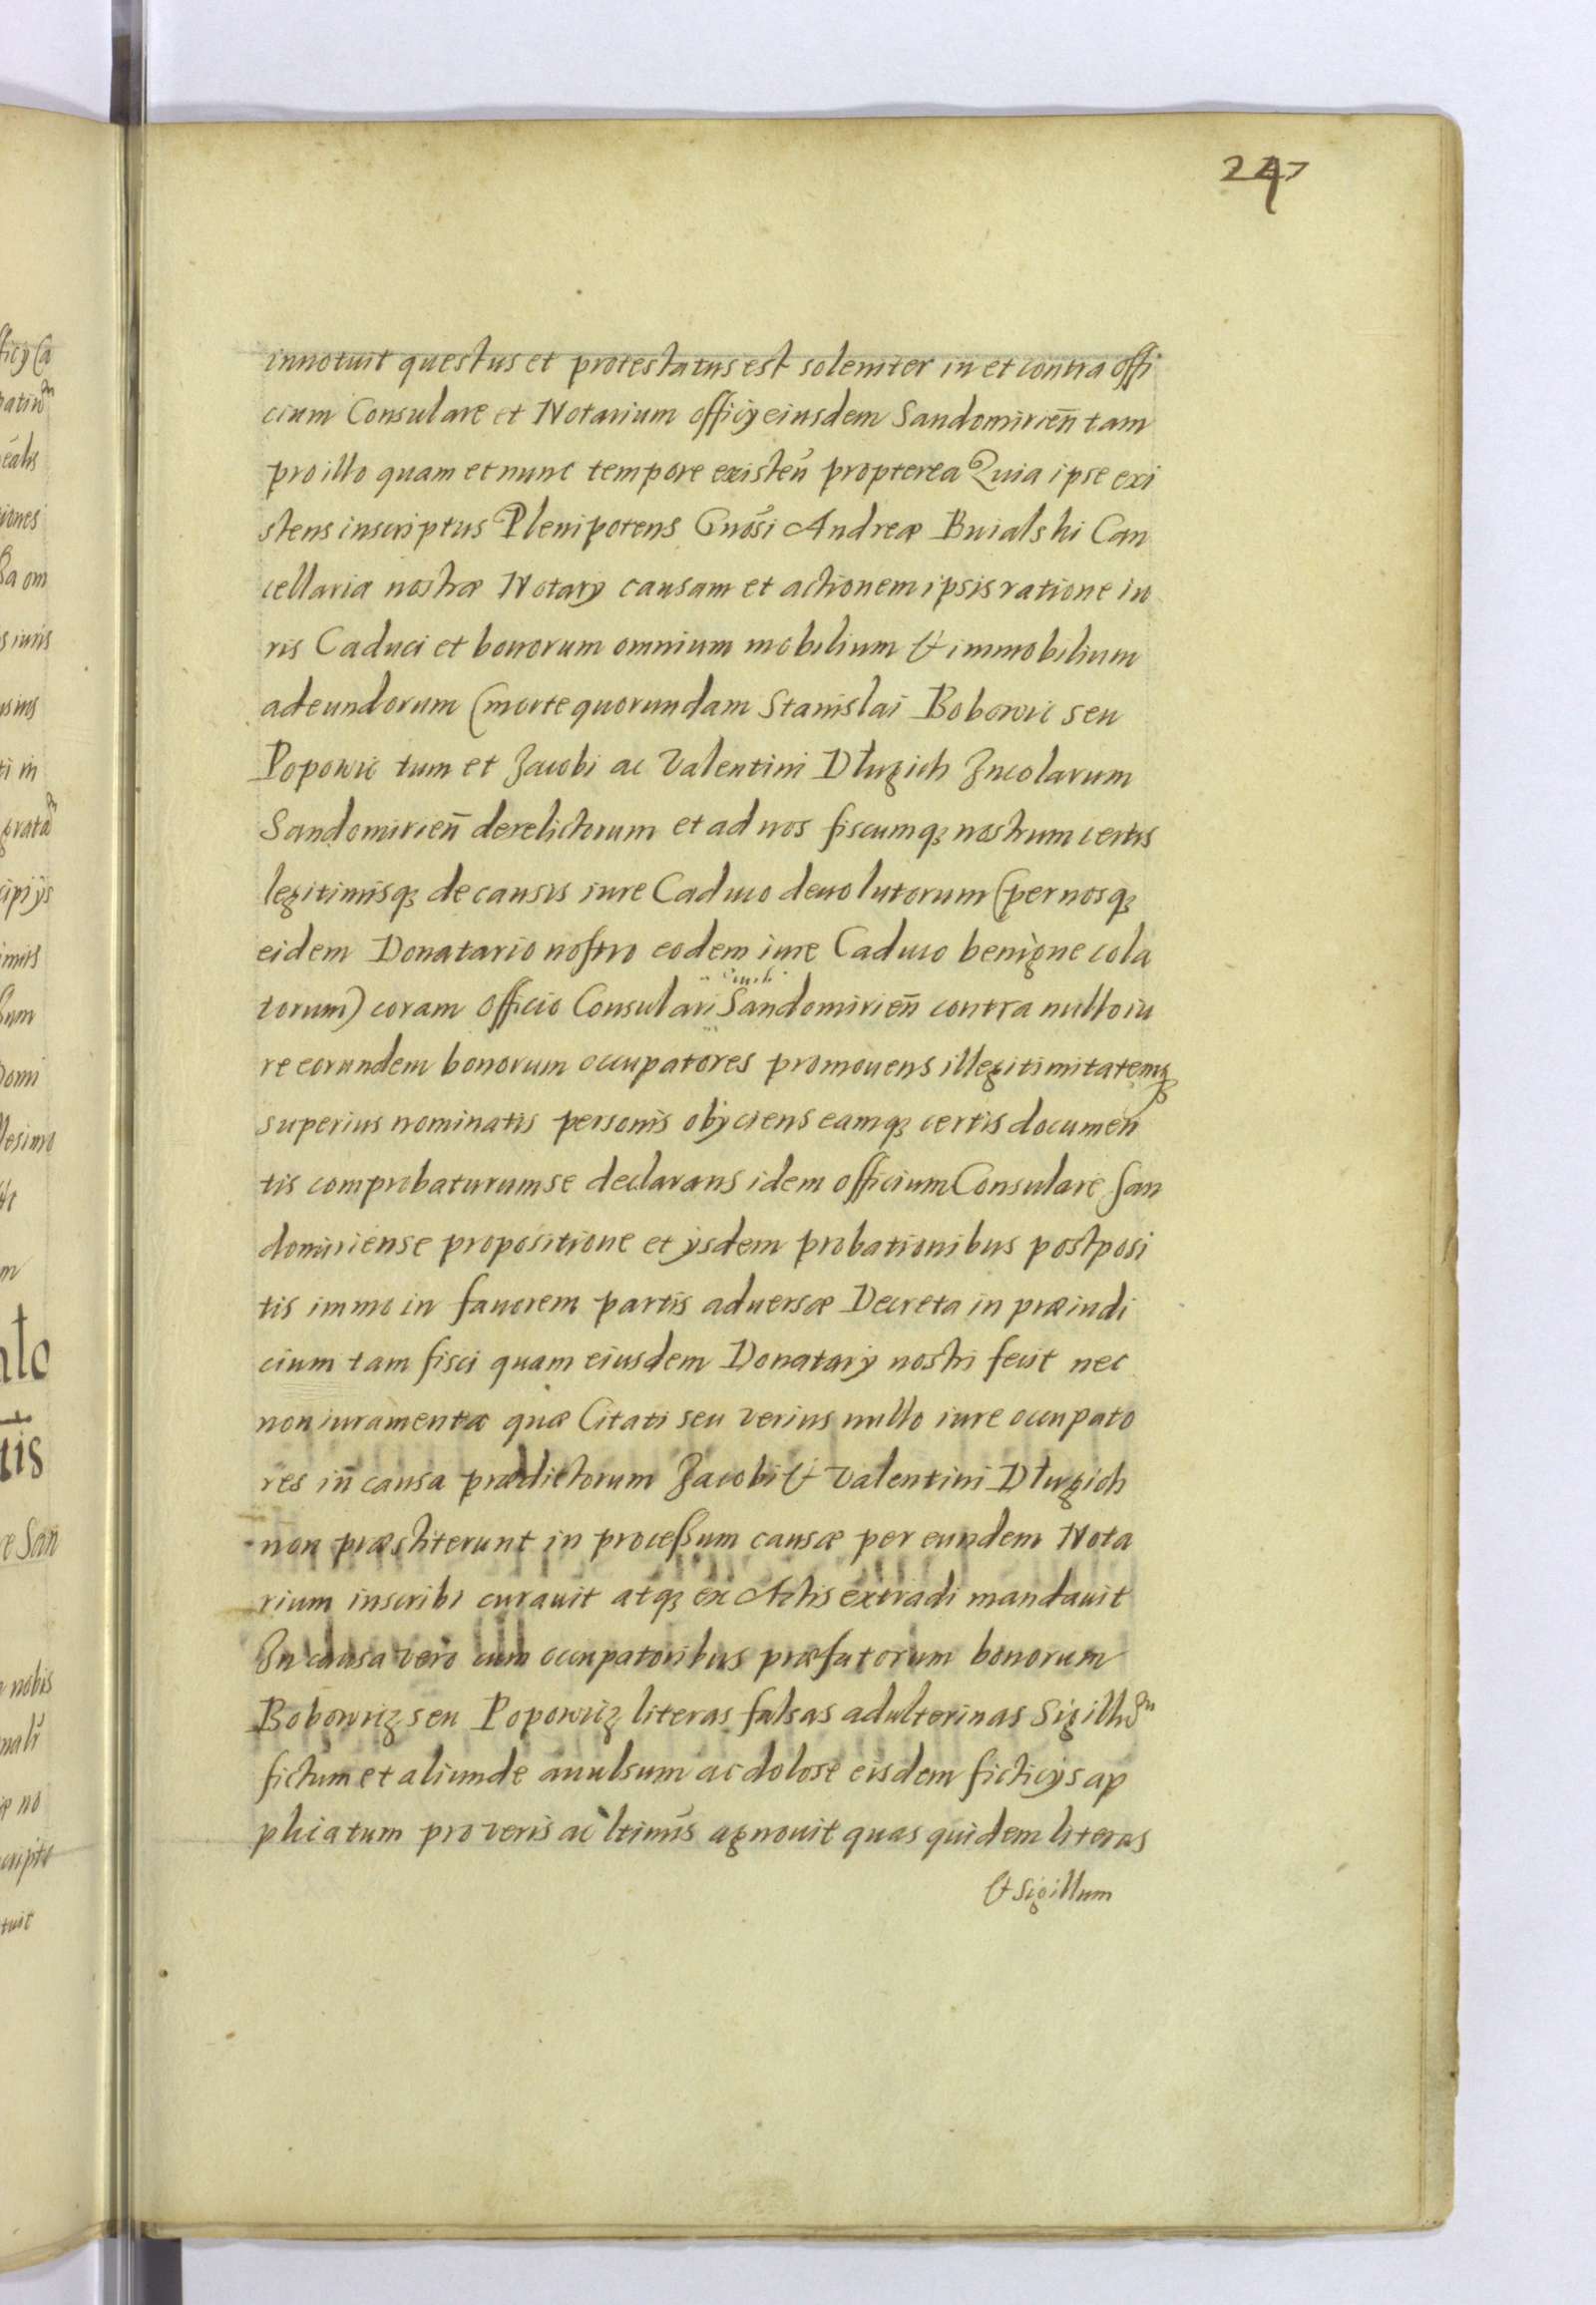 247
innotuit questus et protestatus est solemter in et contra offi
cium Consulare et Notarium officij eiusdem Sandomirień tam
pro illo quam et nunc tempore existeń propterea Quia ipse exi
stens inscriptus Plenipotens Gnosi Andreæ Buialski Can
cellaria nostræ Notarij causam et actionem ipsis ratione iu
ris Caduci et bonorum omnium mobilium & immobilium
adeundorum (morte quorundam Stanislai Bobowic seu
Popowic tum et Jacobi ac Valentini Długich Incolarum
Sandomirien̄ derelictorum et ad nos fiscumq; nostrum certis
legitimisq; de causis iure Caduco deuolutorum (per nosq;
eidem Donatario nostro eodem iure Caduco benigne cola
torum) coram Officio Consulari Sandomirien̄ contra nullo iu
re eorundem bonorum occupatores promouens illegitimitatemq;
superius nominatis personis obijciens eamq; certis documen
tis comprobaturum se declarans idem officium Consulare San
domiriense propositione et ijsdem probationibus postposi
tis immo in fauorem partis aduersæ Decreta in præiudi
cium tam fisci quam eiusdem Donatarij nostri fecit nec
non iuramenta quæ Citati seu verius nullo iure occupato
res in causa prædictorum Jacobi & Valentini Długich
non præstiterunt in processum causæ per eundem Nota
rium inscribi curauit atq; ex Actis extradi mandauit
In causa vero cum occupatoribus præfatorum bonorum
Bobowicz seu Popowicz literas falsas adulterinas Sigillum
fictum et aliunde auulsum ac dolose eisdem ficticijs ap
plicatum pro veris ac ltimis agnouit quas quidem literas
& Sigillum